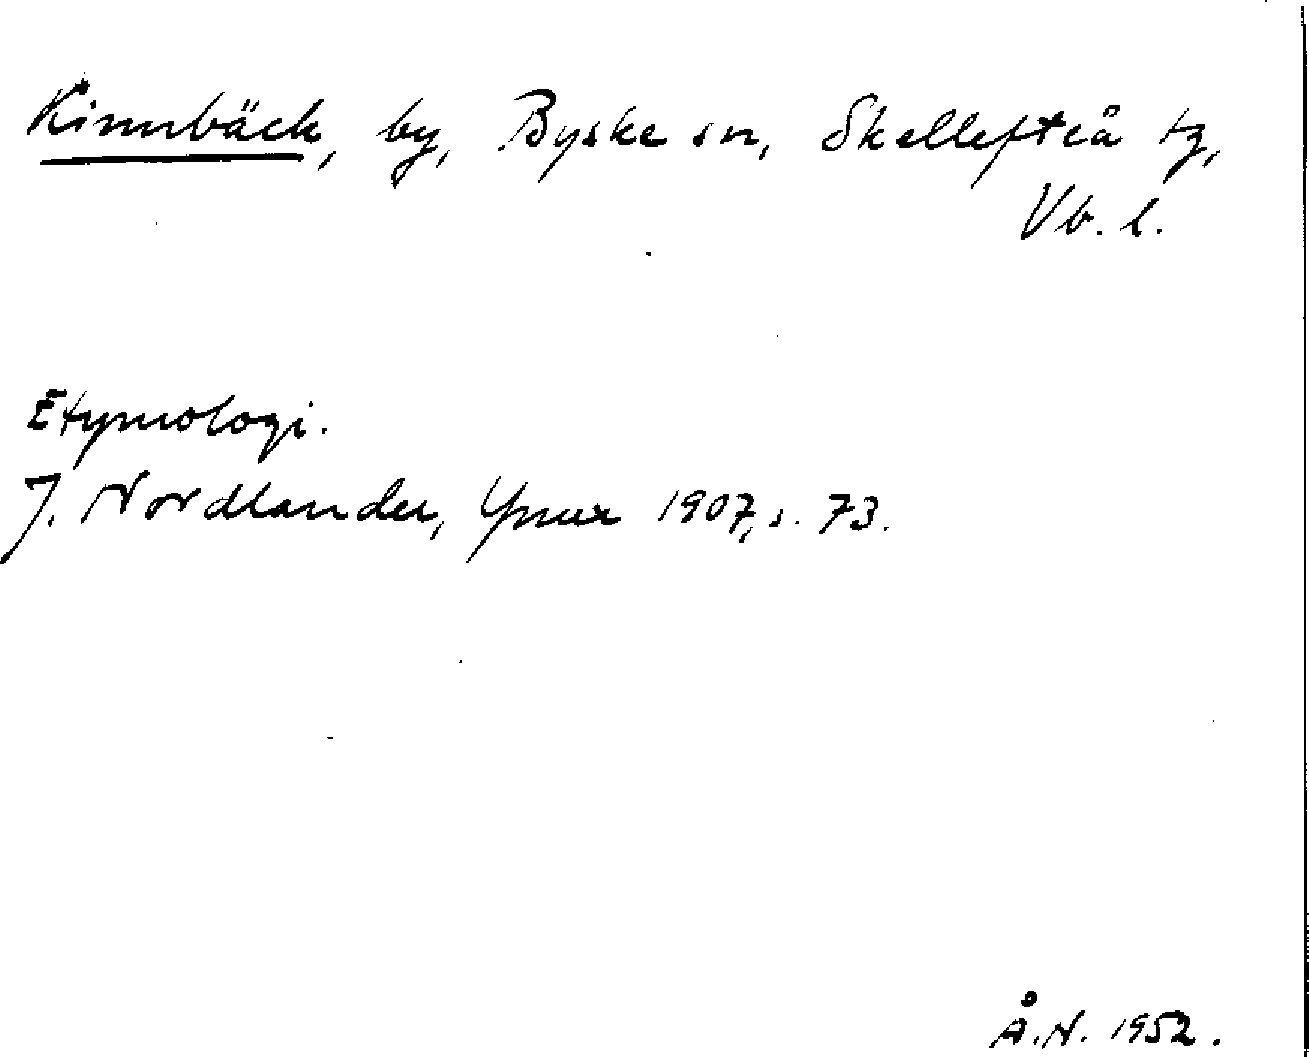 Kinnbäck, by, Byske sn, Skellefteå tg,
Vb. l.
Etymologi.
J. Nordlander, Ymer 1907, s. 73.
Å.N. 1952.